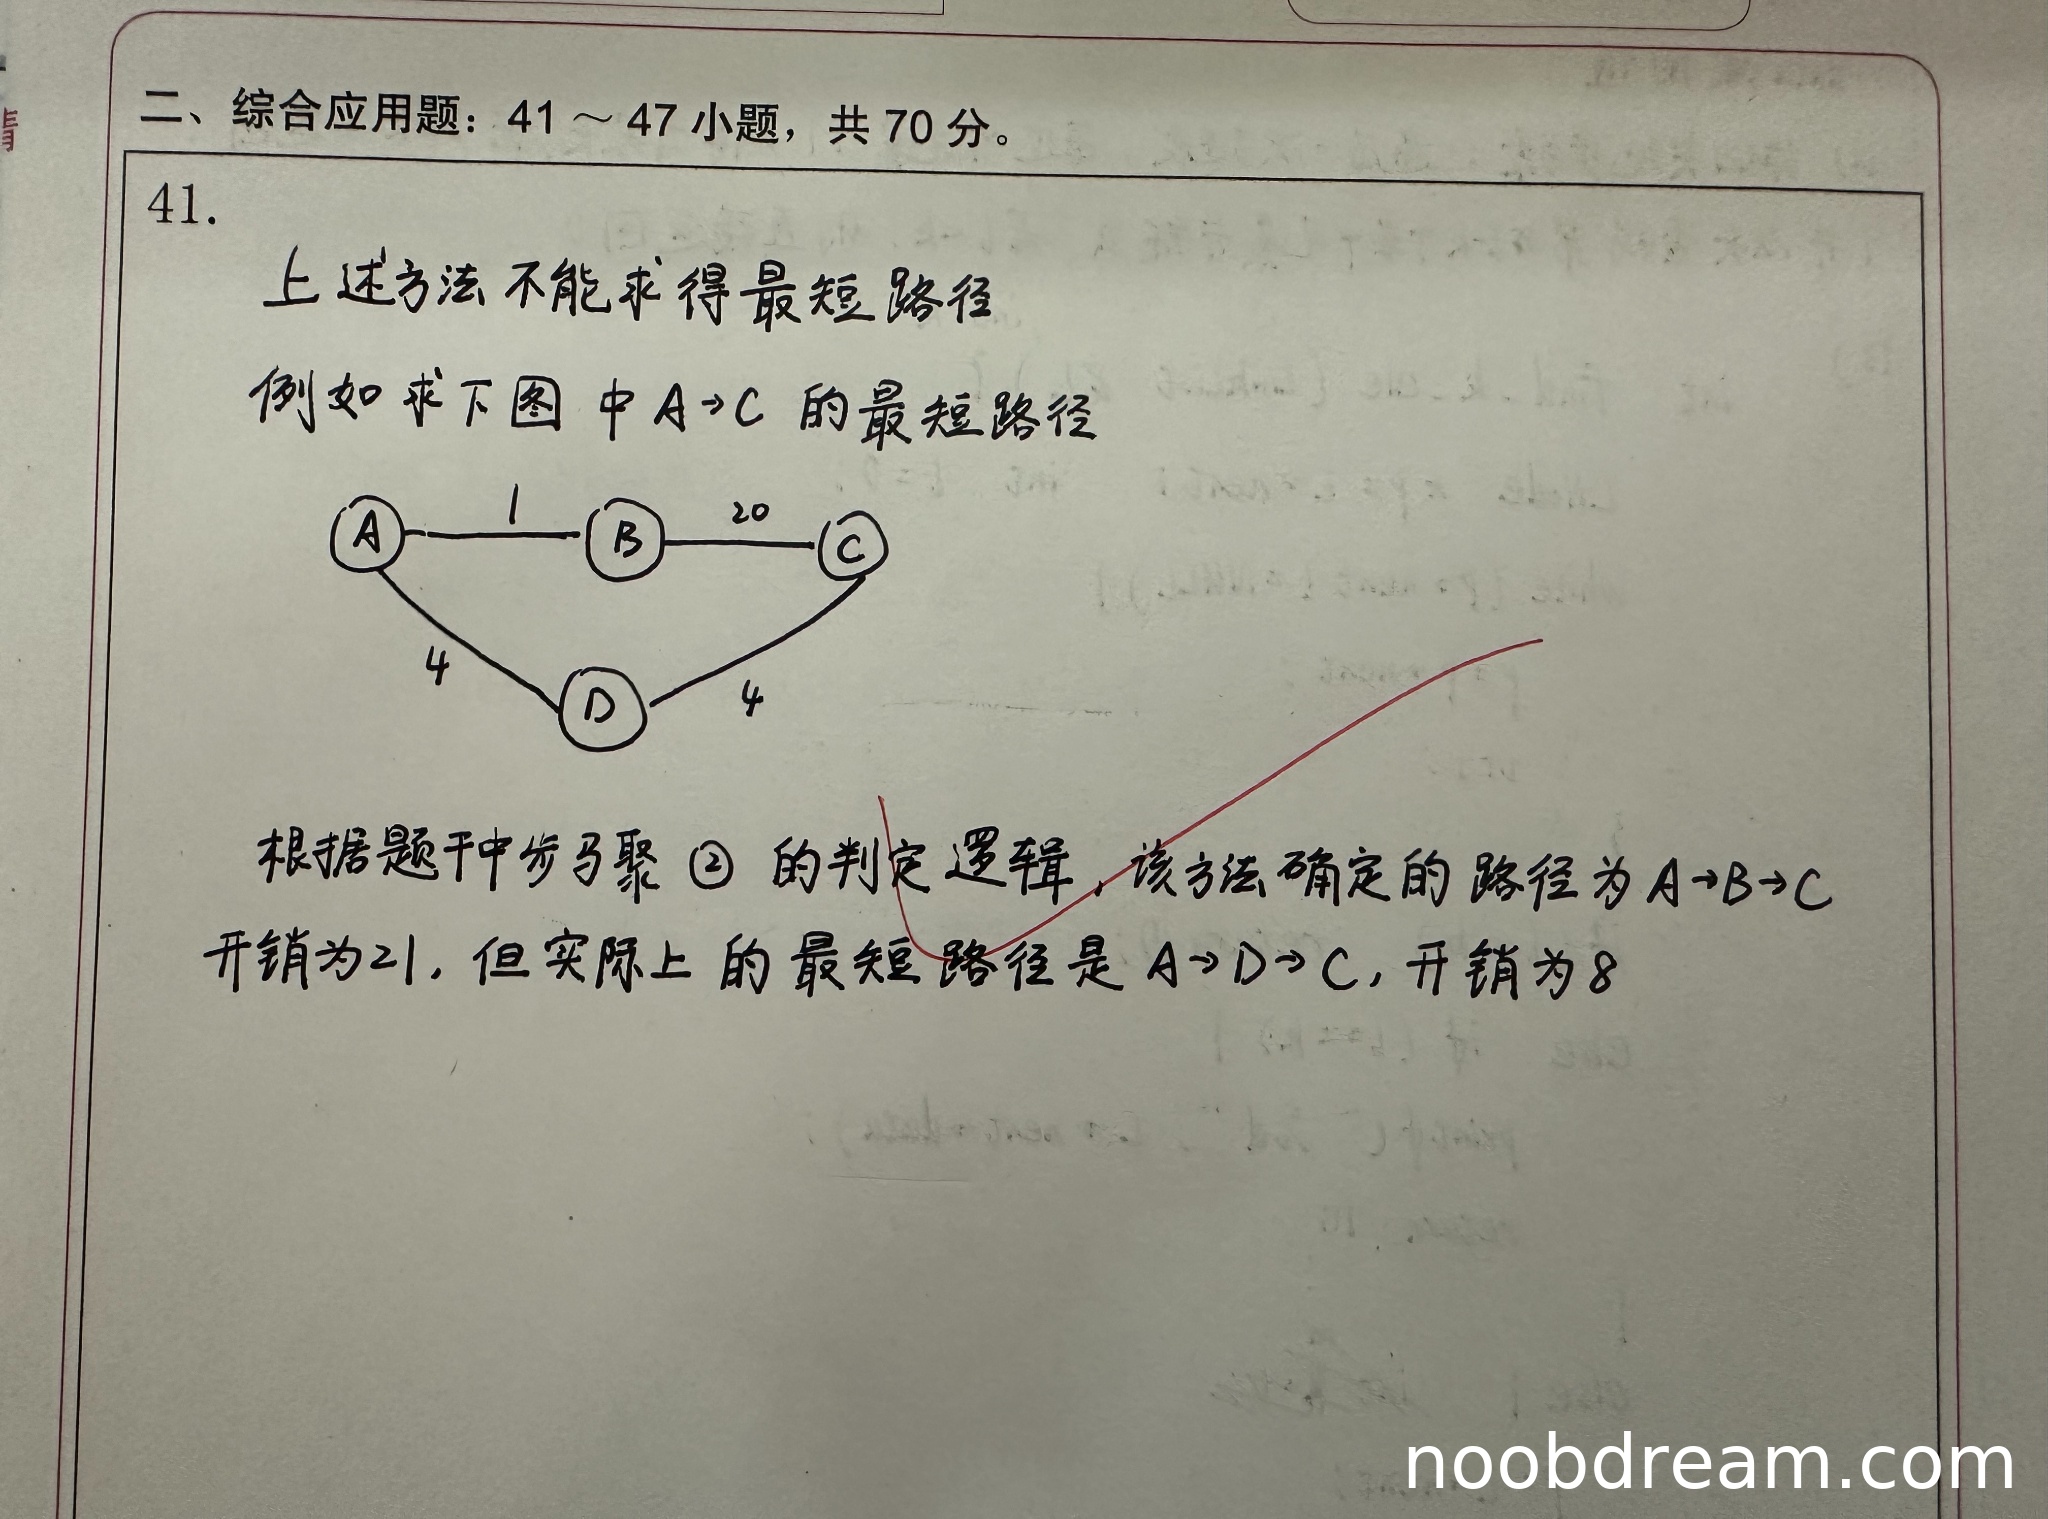 二、综合应用题：41～47小题，共70分。
41.
上述方法不能求得最短路径
例如求下图中A→C的最短路径
A 1 B 20 C
4 D 4
根据题干中步骤②的判定逻辑，该方法确定的路径为A→B→C
开销为21，但实际上的最短路径是A→D→C，开销为8
noobdream.com